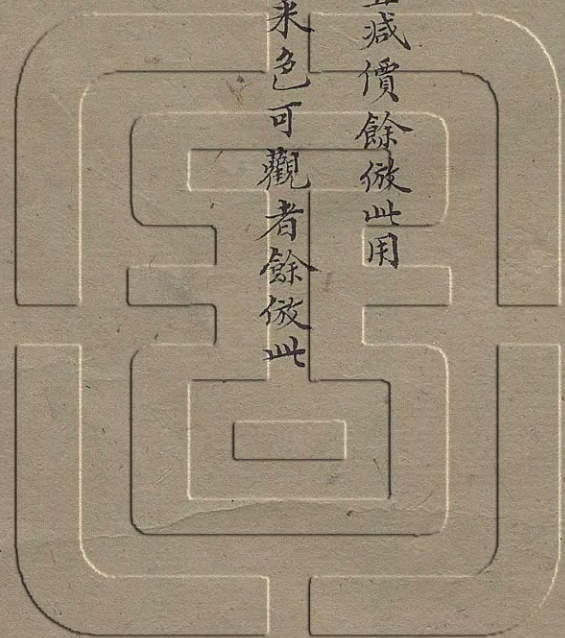 減價餘倣此用
米色可觀者餘倣此